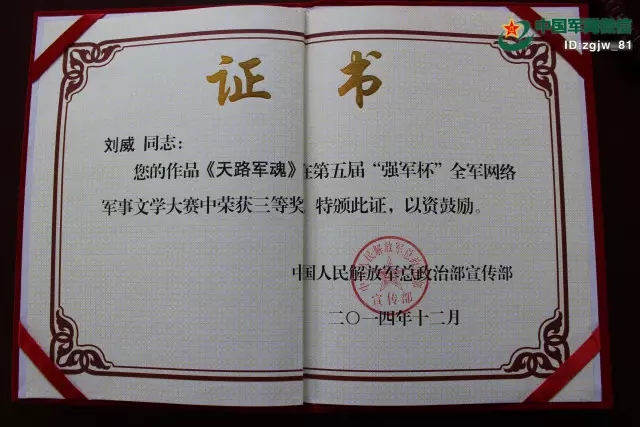 中国军网微信
ID:zgjw_81
证书
刘威 同志：
您的作品《天路军魂》在第五届“强军杯”全军网络
军事文学大赛中荣获三等奖 特颁此证，以资鼓励。
中国人民解放军总政治部宣传部
二〇一四年十二月
中国人民解放军总政治部
宣传部